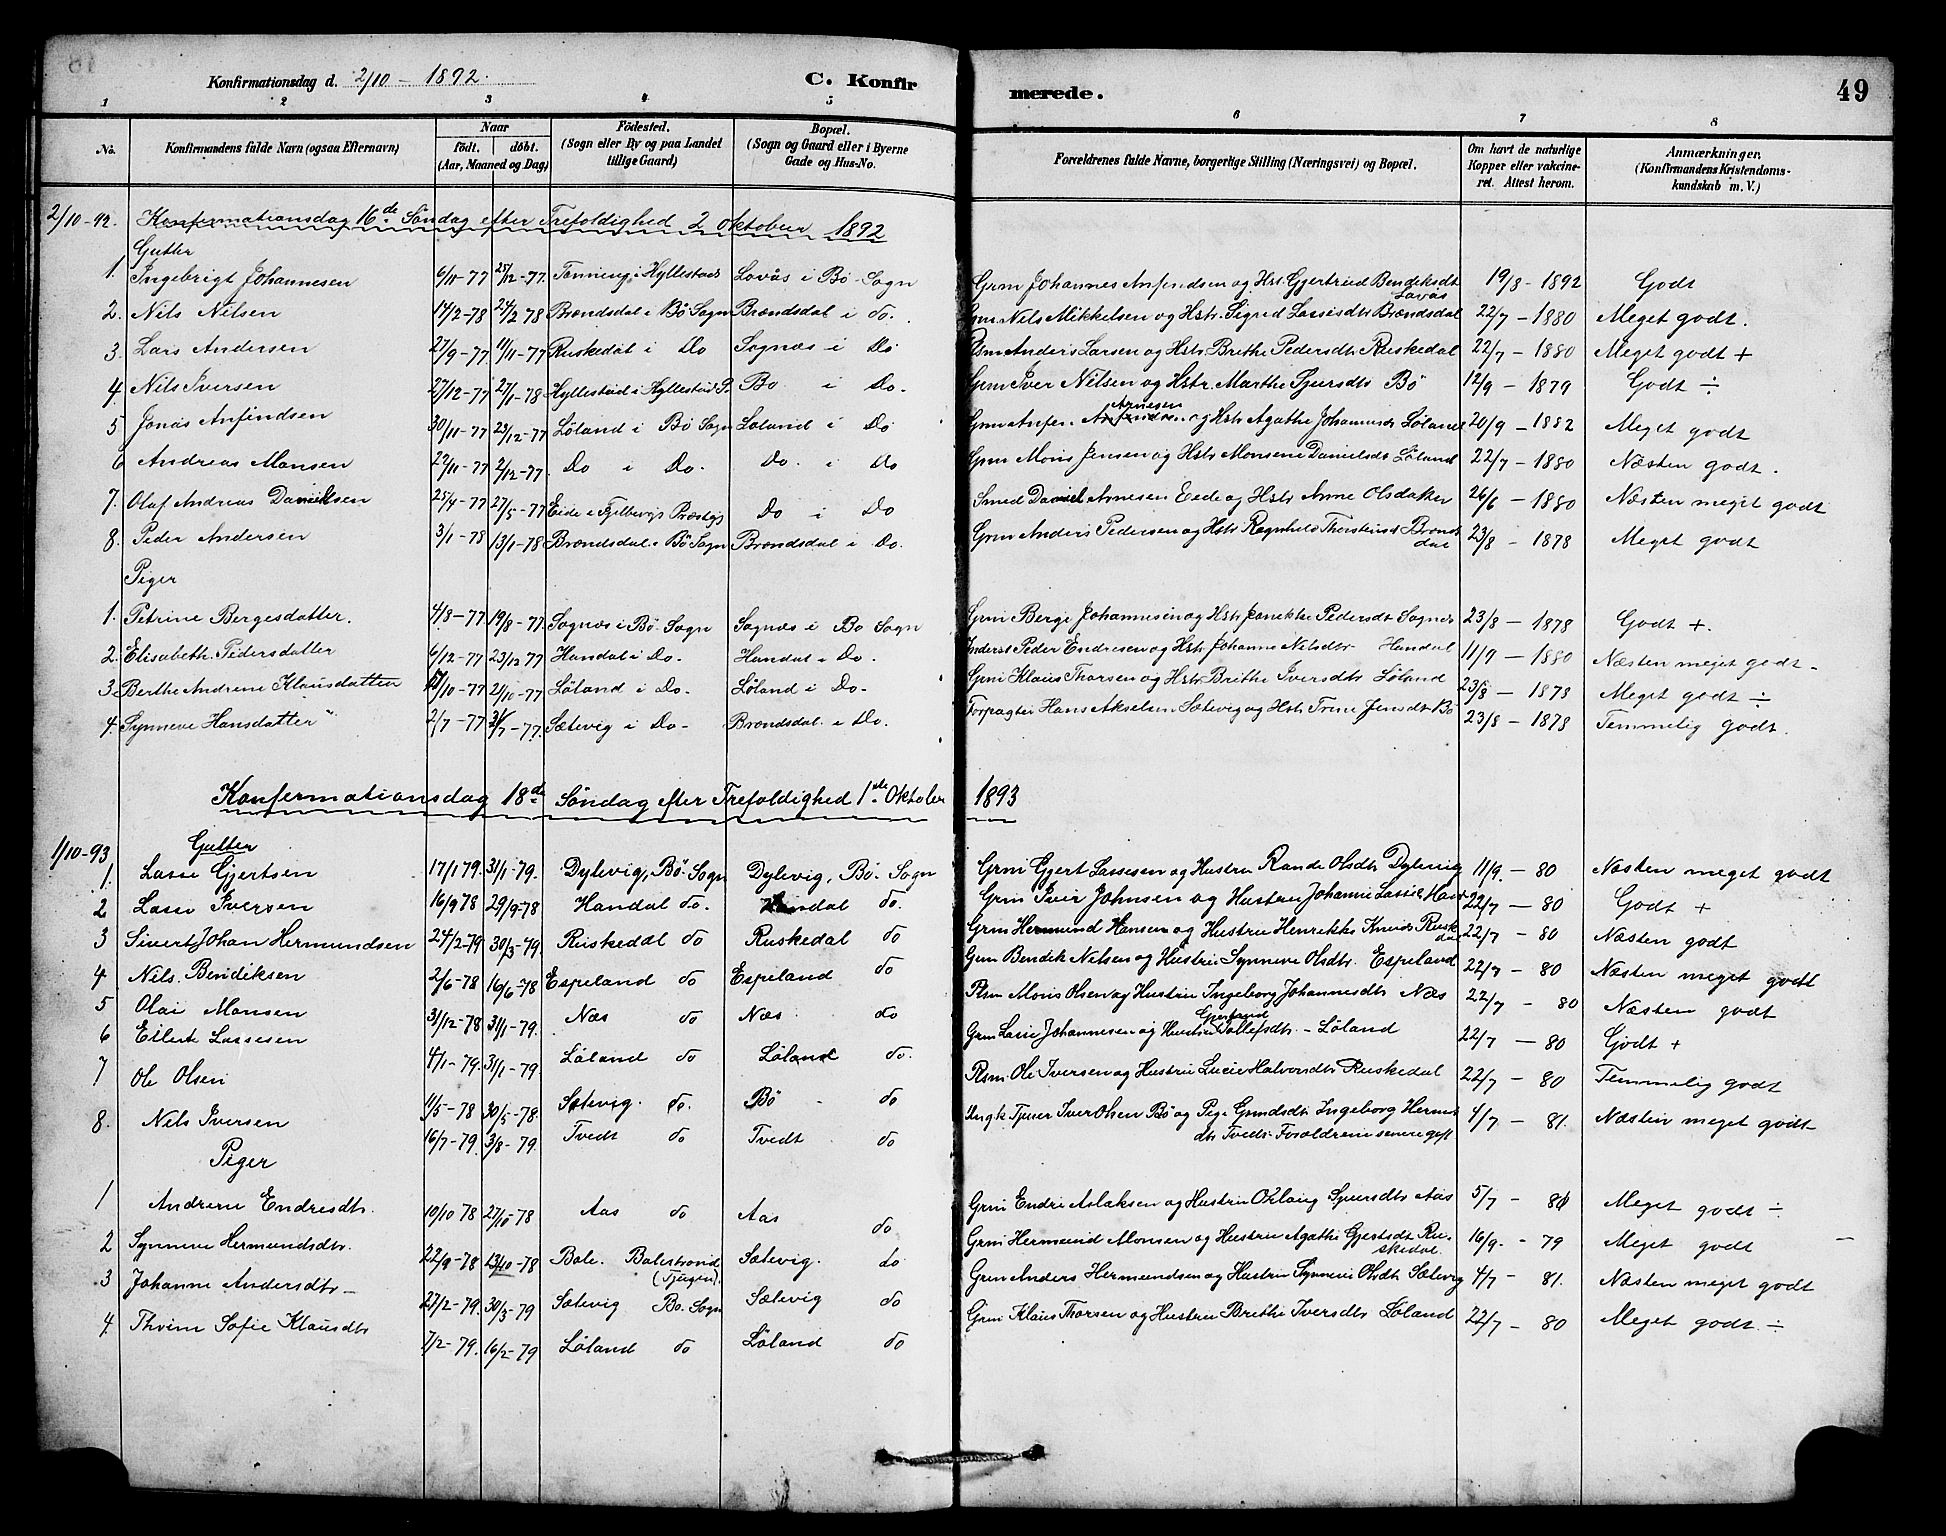 Konfirmationsdag d. 2/10 - 1892. C. Konfirmerede. 49
1 2 3 4 5 6 7 8
No. Konfirmandens fulde Navn (ogsaa Efternavn) Naar født. døbt. (Aar, Maaned og Dag) Fødested. (Sogn eller By og paa Landet tillige Gaard) Bopæl. (Sogn og Gaard eller i Byerne Gade og Hus-No. Forældrenes fulde Navne, borgerlige Stilling (Næringsvei) og Bopæl. Om havt de naturlige Kopper eller vakcineret. Attest herom. Anmærkninger. (Konfirmandens Kristendomskundskab m. V.)
2/10-92. Konfermationsdag 16de Søndag efter Trefoldighed 2 Oktober 1892
Gutter
1. Ingebrigt Johannesen 6/11-77 25/12-77. Tenning i Hyllestad Lovås i Bø Sogn Grm Johannes Anfindsen og Hst. Gjertrud Bendiksdt Lovås 19/8-1892 Godt
2. Nils Nilsen 14/2-78 24/2 78 Brændsdal i Bø Sogn Brændsdal i do. Grm. Nils Mikkelsen og Hstr. Sigrid Lassesdtr Brændsdal 22/7-1880 Meget godt.
3. Lars Andersen 27/9-77 11/11-77 Ruskedal i Do Sognæs i Do Psm Anders Larsen og Hstr Brithe Pedersdtr Ruskedal 22/7-1880 Meget godt +
4. Nils Iversen 27/12-77 27/1-78 Hyllestad i Hyllestad P. Bø i Do. Grm Iver Nilsen og Hstr. Marthe Sjursdtr Bø 12/9-1879 Godt ÷
5 Jonas Anfindsen 30/11-77 23/12-77 Løland i Bø Sogn Løland i Do Grm Anfin Arnesen og Hstr Agathe Johannesdt Løland 20/9-1882 Meget godt
6 Andreas Monsen 22/11-77 2/12-77. Do i Do. Do. i Do Grm Mons Jensen og Hstr Monsine Danielsdt Løland 22/7-1880 Næsten godt.
7. Olaf Andreas Danielsen 25/4-77 27/5-77 Eide i Fjelbergs Præstgj Do i Do Smed Daniel Arnesen Eide og Hstr Anne Olsdatter 26/6-1880 Næsten meget godt
8. Peder Andersen 3/1-78 13/1-78 Brændsdal i Bø Sogn Brændsdal i Do. Grm Anders Pedersen og Hstr Ragnhild Thorsteinsd Brændsdal 23/8-1878 Meget godt
Piger
1. Petrine Bergesdatter. 4/8-77 19/8-77. Sognæs i Bø Sogn Sognæs i Bø Sogn Grm Berge Johannesen og Hstr Janekke Pedersdt Sognæs 23/8-1878 Godt +.
2. Elisabeth Pedersdatter 6/12-77 23/12 77 Handal i Do. Handal i Do. Inderst Peder Endresen og Hstr Johanne Nilsdtr Handal 11/9-1880 Næsten meget godt.
3. Berthe Andrine Klausdatter /10-77 21/10-77 Løland i Do. Løland i Do. Grm Klaus Thorsen og Hstr Brithe Iversdtr Løland 23/8-1878 Meget godt ÷
4. Synneve Hansdatter 2/7-77 /7-77. Sætevig i Do. Brændsdal i Do. Forpagter Hans Akselsen Sætevig og Hstr Trine Jensdt Bø 23/8-1878 Temmelig godt.
Konfermationsdag 18de Søndag efter Trefoldighed 1ste Oktober 1893
1/10-93 Gutter
1. Lasse Gjertsen 17/1 79. 31/1-79. Dylevig, Bø-Sogn Dylevig, Bø-Sogn Grm Gjert Lassesen og Hustru Rande Olsdtr Dylevig 11/9.-80 Næsten meget godt
2 Lasse Iversen 16/9 78 29/9-78 Handal do. Handal do. Grm Iver Johnsen og Hustru Johanne Lassed Hand 22/7-80 Godt +
3 Sivert Johan Hermundsen 24/2-79 30/3-79. Ruskedal do Ruskedal do Grm Hermund Hansen og Hustru Henrikke Knudsd Ruskdal 22/7-80 Næsten godt
4 Nils Bendiksen 2/6-78 16/6-78 Espeland do Espeland do Grm Bendik Nilsen og Hustru Synneve Olsdtr. Espeland 22/7-80 Næsten meget godt
5 Olai Monsen 31/12-78 31/1-79. Næs do Næs do Psm Mons Olsen og Hustru Ingeborg Johannesdtr Næs 22/7-80 Næsten godt
6 Eilert Lassesen 4/1-79. 31/1-79. Løland do Løland do. Grm Lasse Johannesen og Hustru Gjertrud Tollefsdtr.-Løland 22/7-80 Godt +
7 Ole Olsen 11/5-78 30/5-78. Sætevig. do. Bø do Psm. Ole Iversen og Hustru Lucie Halvorsdtr Ruskedal 22/7-80 Temmelig godt
8. Nils Iversen 16/7-79. 3/8-79. Tvedt do Tvedt do Ungk Tjener Iver Olsen Bø og Pige Grmdsdtr Ingeborg Hermdtr Tvedt. Forældrene senere gift 4/7-81. Næsten meget godt
Piger
1 Andrine Endresdtr. 10/10 78 27/10-78 Aas do Aas do Grm Endre Aslaksen og Hustru Oklaug Sjursdtr Aas 5/7-8 Meget godt ÷
2 Synneve Hermundsdtr. 22/9-78 13/10-78 Bale. Balestrand (Tjugen). Sætevig. do Grm Hermund Monsen og Hustru Agathe Gjertsdt Ruskedal. 16/9.-79 Meget godt
3 Johanne Andersdtr 27/2-79. 30/3-79 Sætevig Bø. Sogn Sætevig do Grm Anders Hermundsen og Hustru Synneve Olsdtr Sætevig 4/7-81. Næsten meget godt
4. Thrine Sofie Klausdtr 7/2-79. 16/2-79 Løland do Løland do Grm Klaus Thorsen og Hustru Brithe Iversdtr Løland 22/7-80 Meget godt ÷